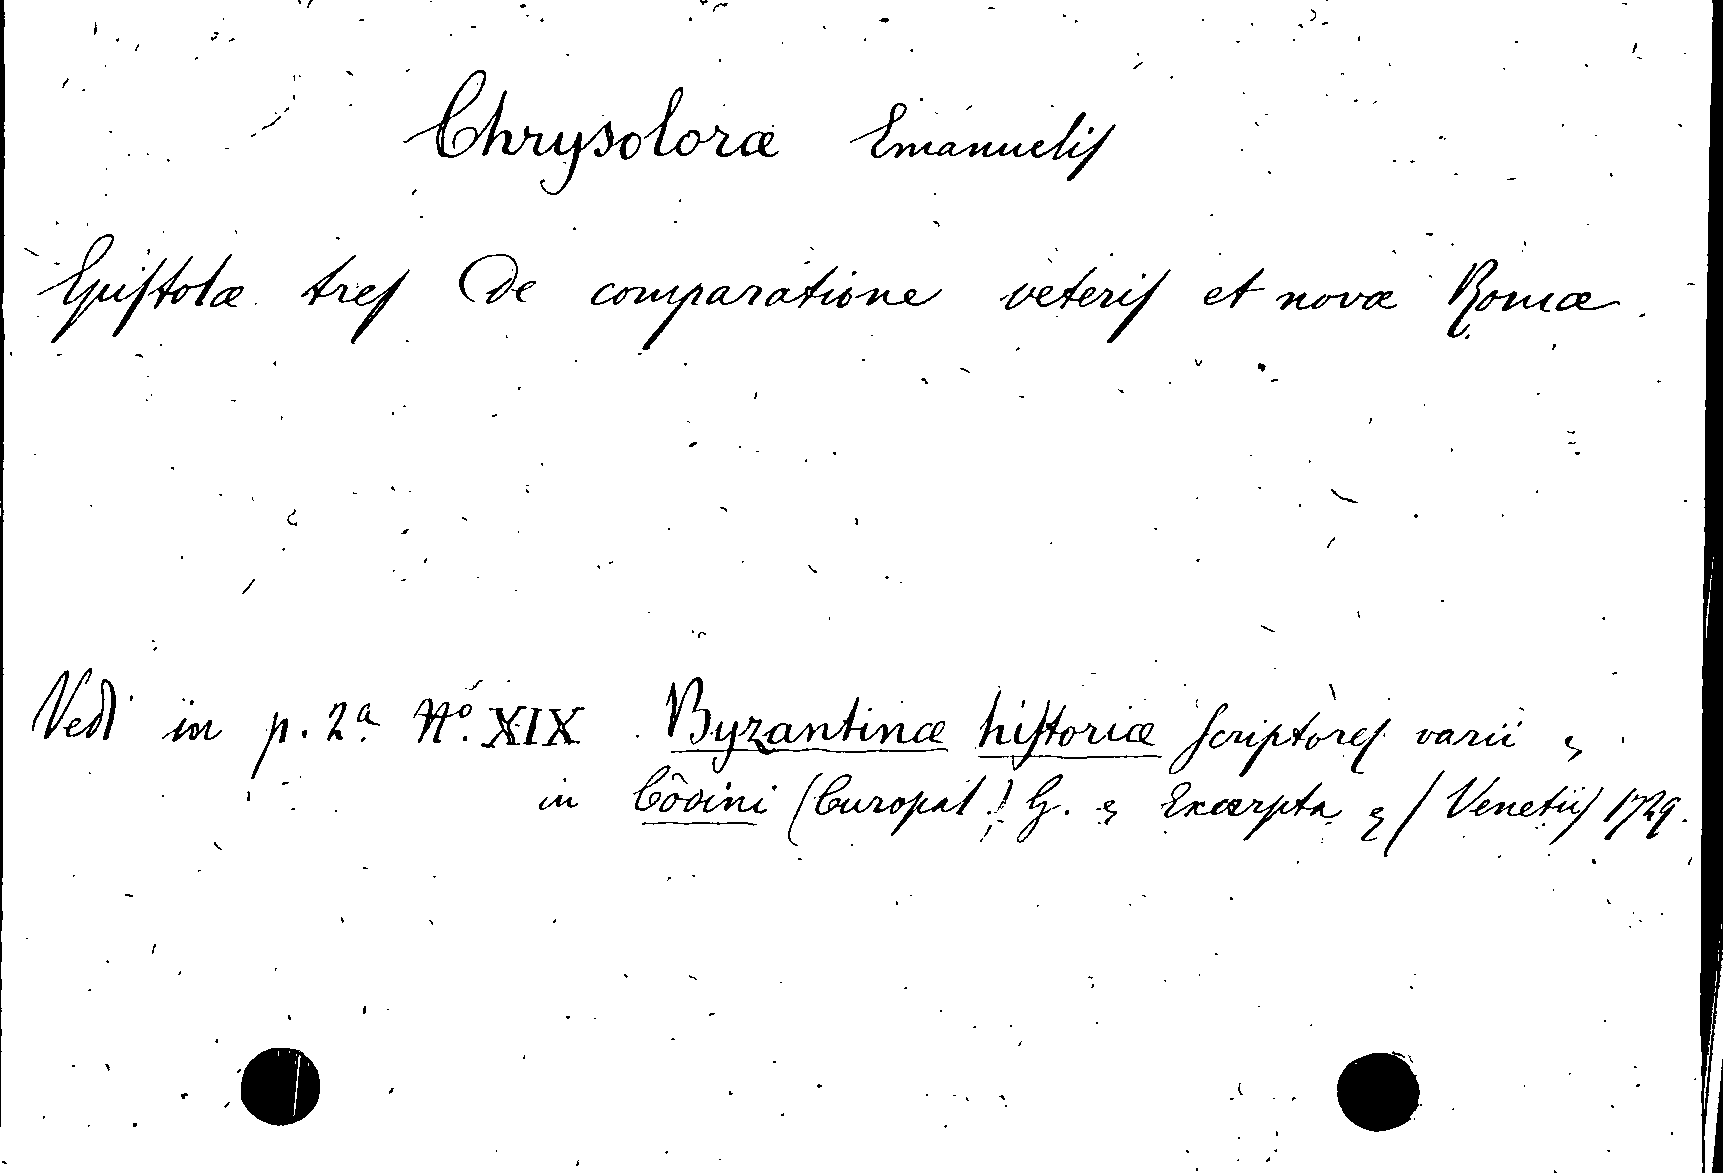 Chrysoloræ Emanuelis
Epistolæ tres De comparatione veteris et novæ Romæ.
Vedi in p. 2ª Nº. XIX Byzantinæ historiæ scriptores varii &
in Codini (Curopal.) G. & Excerpta & / Venetiis 1729.